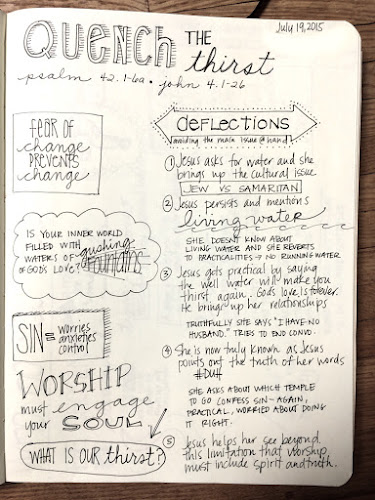 July 19, 2015
QUENCH THE
thirst
psalm 42.1-6a · john 4.1-26
fear of
change
prevents
change
IS YOUR INNER WORLD
FILLED WITH gushing
WATERS OF fountains
OF GOD'S LOVE?
SIN = worries
anxieties
control
WORSHIP
must engage
your SOUL
WHAT IS OUR thirst?
deflections
avoiding the main issue @ hand
① Jesus asks for water and she
brings up the cultural issue
JEW VS SAMARITAN
② Jesus persists and mentions
living water
SHE DOESN'T KNOW ABOUT
LIVING WATER AND SHE REVERTS
TO PRACTICALITIES → NO RUNNING WATER
③ Jesus gets practical by saying
the well water will make you
thirst again. God's love is forever.
He brings up her relationships
TRUTHFULLY SHE SAYS "I HAVE NO
HUSBAND." TRIES TO END CONVO.
④ She is now truly known as Jesus
points out the truth of her words
#DUH
SHE ASKS ABOUT WHICH TEMPLE
TO GO CONFESS SIN - AGAIN,
PRACTICAL, WORRIED ABOUT DOING
IT RIGHT.
⑤ Jesus helps her see beyond
this limitation that worship
must include spirit and truth.